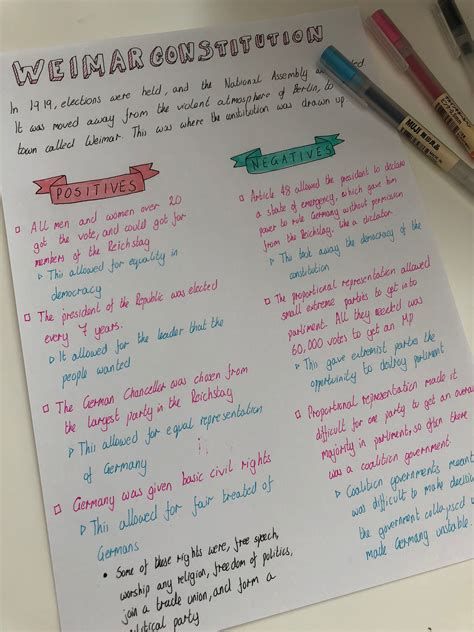 WEIMAR CONSTITUTION
In 1919, elections were held, and the National Assembly
It was moved away from the violent atmosphere of Berlin, to
town called Weimar. This was where the constitution was drawn up
POSITIVES
All men and women over 20
got the vote, and could got for
members of the Reichstag
This allowed for equality in
democracy
The president of the Republic was elected
every 7 years.
It allowed for the leader that the
people wanted
The German Chancellor was chosen from
the largest party in the Reichstag
This allowed for equal representation
of Germany
Germany was given basic civil rights
This allowed for fair treated of
Germans
Some of these rights were, free speech,
worship any religion, freedom of politics,
join a trade union, and form a
political party
NEGATIVES
Article 48 allowed the president to declare
a state of emergency, which gave him
power to rule Germany without permission
from the Reichstag. Like a dictator
This took away the democracy of the
constitution
The proportional representation allowed
small extreme parties to get into
parliment. All they needed was
60,000 votes to get an MP
This gave extremist parties the
opportunity to destroy parliment
Proportional representation made it
difficult for one party to get an overall
majority in parliment, so often there
was a coalition government
Coalition governments meant
was difficult to make decisions
the government collapsed
made Germany unstable
MUJI